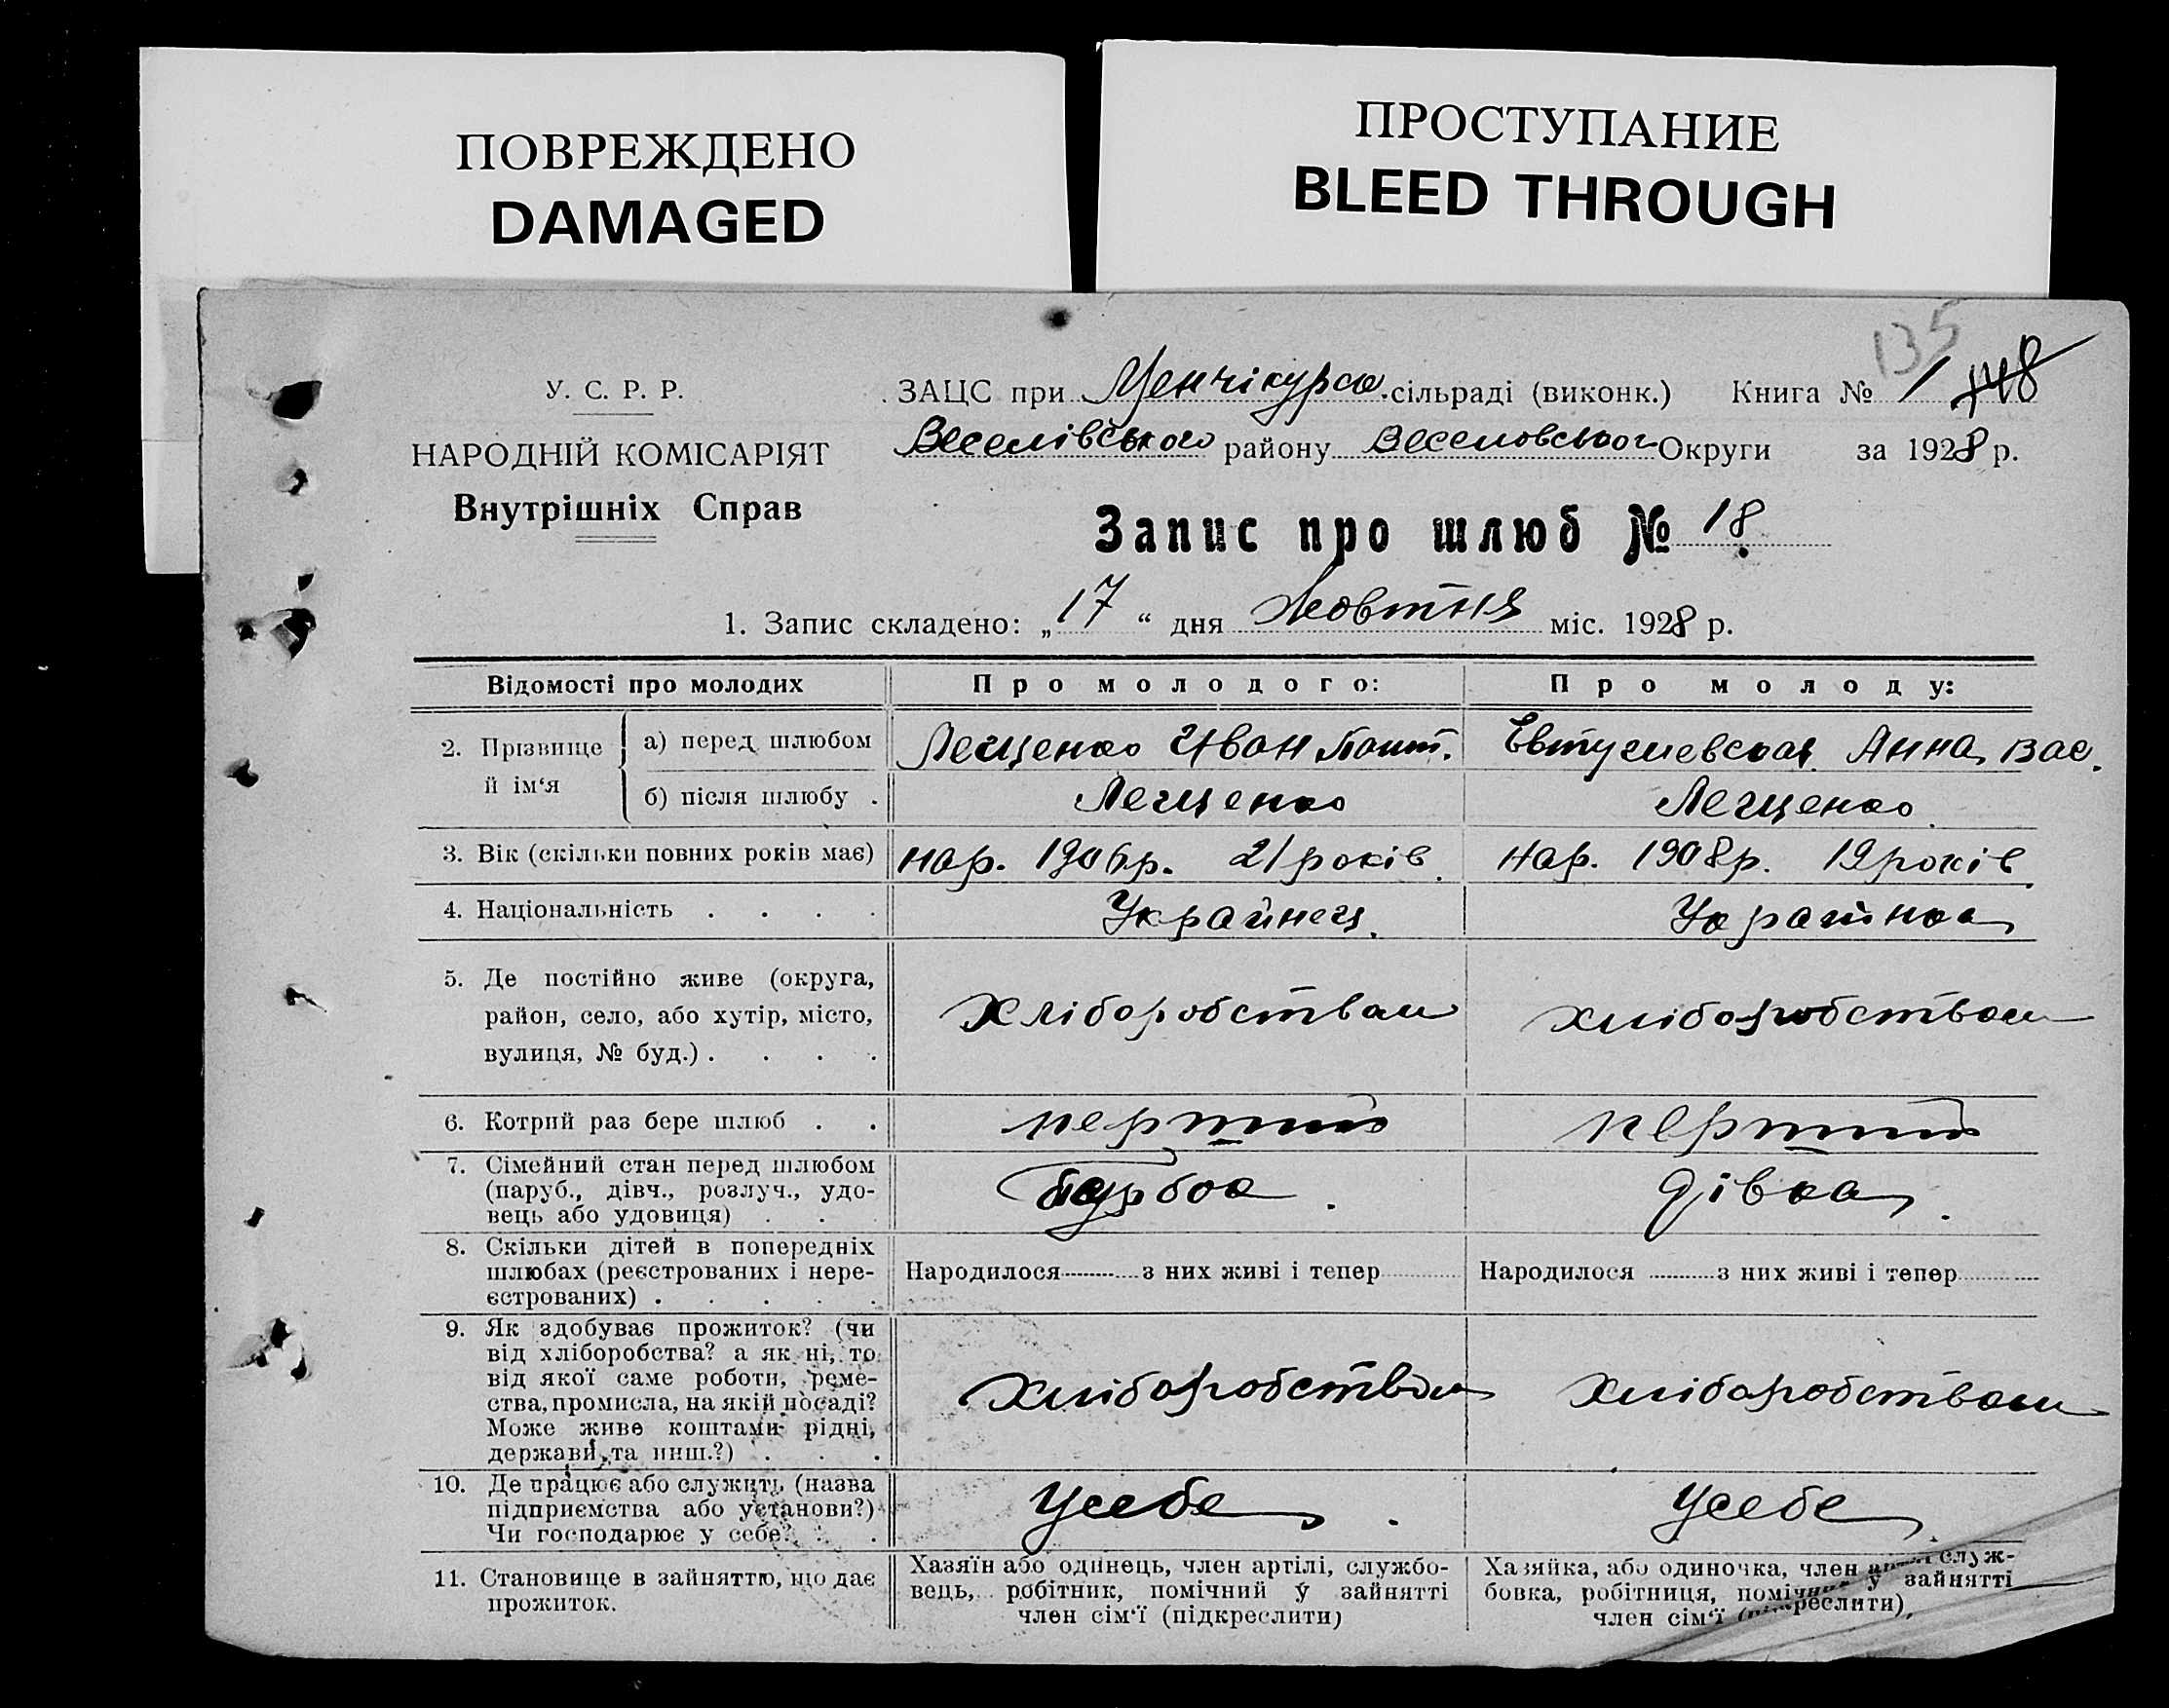 ПОВРЕЖДЕНО
DAMAGED
ПРОСТУПАНИЕ
BLEED THROUGH
135
У. С. Р. Р.
НАРОДНІЙ КОМІСАРІЯТ
Внутрішніх Справ
ЗАЦС при Менчікурсо. сільраді (виконк.) Книга № 1
Веселівського району Веселовськог Округи за 1928 р.
Запис про шлюб № 18.
1. Запис складено: „17“ дня Жовтня міс. 1928 р.
Відомості про молодих Про молодого: Про молоду:
2. Прізвище й ім‘я
а) перед шлюбом Лещенко Иван Евтушевская Анна Вас.
б) після шлюбу . Лещенко Лещенко
3. Вік (скільки повних років має) нар. 1906р. 21 років нар. 1908р. 19 років
4. Національність . . . . Українец. Украинка
5. Де постійно живе (округа,
район, село, або хутір, місто,
вулиця, № буд.) . . . .
Хліборобством хліборобством
6. Котрий раз бере шлюб . . перший перший
7. Сімейний стан перед шлюбом
(паруб., дівч., розлуч., удо-
вець або удовиця) . .
дівка.
8. Скільки дітей в попередніх
шлюбах (реєстрованих і нере-
єстрованих) . . . . .
Народилося з них живі і тепер Народилося з них живі і тепер
9. Як здобуває прожиток? (чи
від хліборобства? а як ні, то
від якої саме роботи, реме-
ства, промисла, на якій посаді?
Може живе коштами рідні,
держави, та инш.?) . . .
Хліборобством Хліборобством
10. Де працює або служить (назва
підприємства або установи?)
Чи господарює у себе? . .
Усебе. Усебе
11. Становище в зайняттю, що дає
прожиток.
Хазяїн або одинець, член артілі, службо-
вець, робітник, помічний у зайнятті
член сім‘ї (підкреслити)
Хазяйка, або одиночка, член служ-
бовка, робітниця, у зайнятті
член сім‘ї